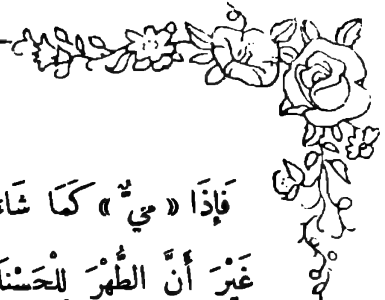 فَإِذَا « مَيٌّ » كَمَا شَاءَ
غَيْرَ أَنَّ الطُّهْرَ لِلْحَسْنَا